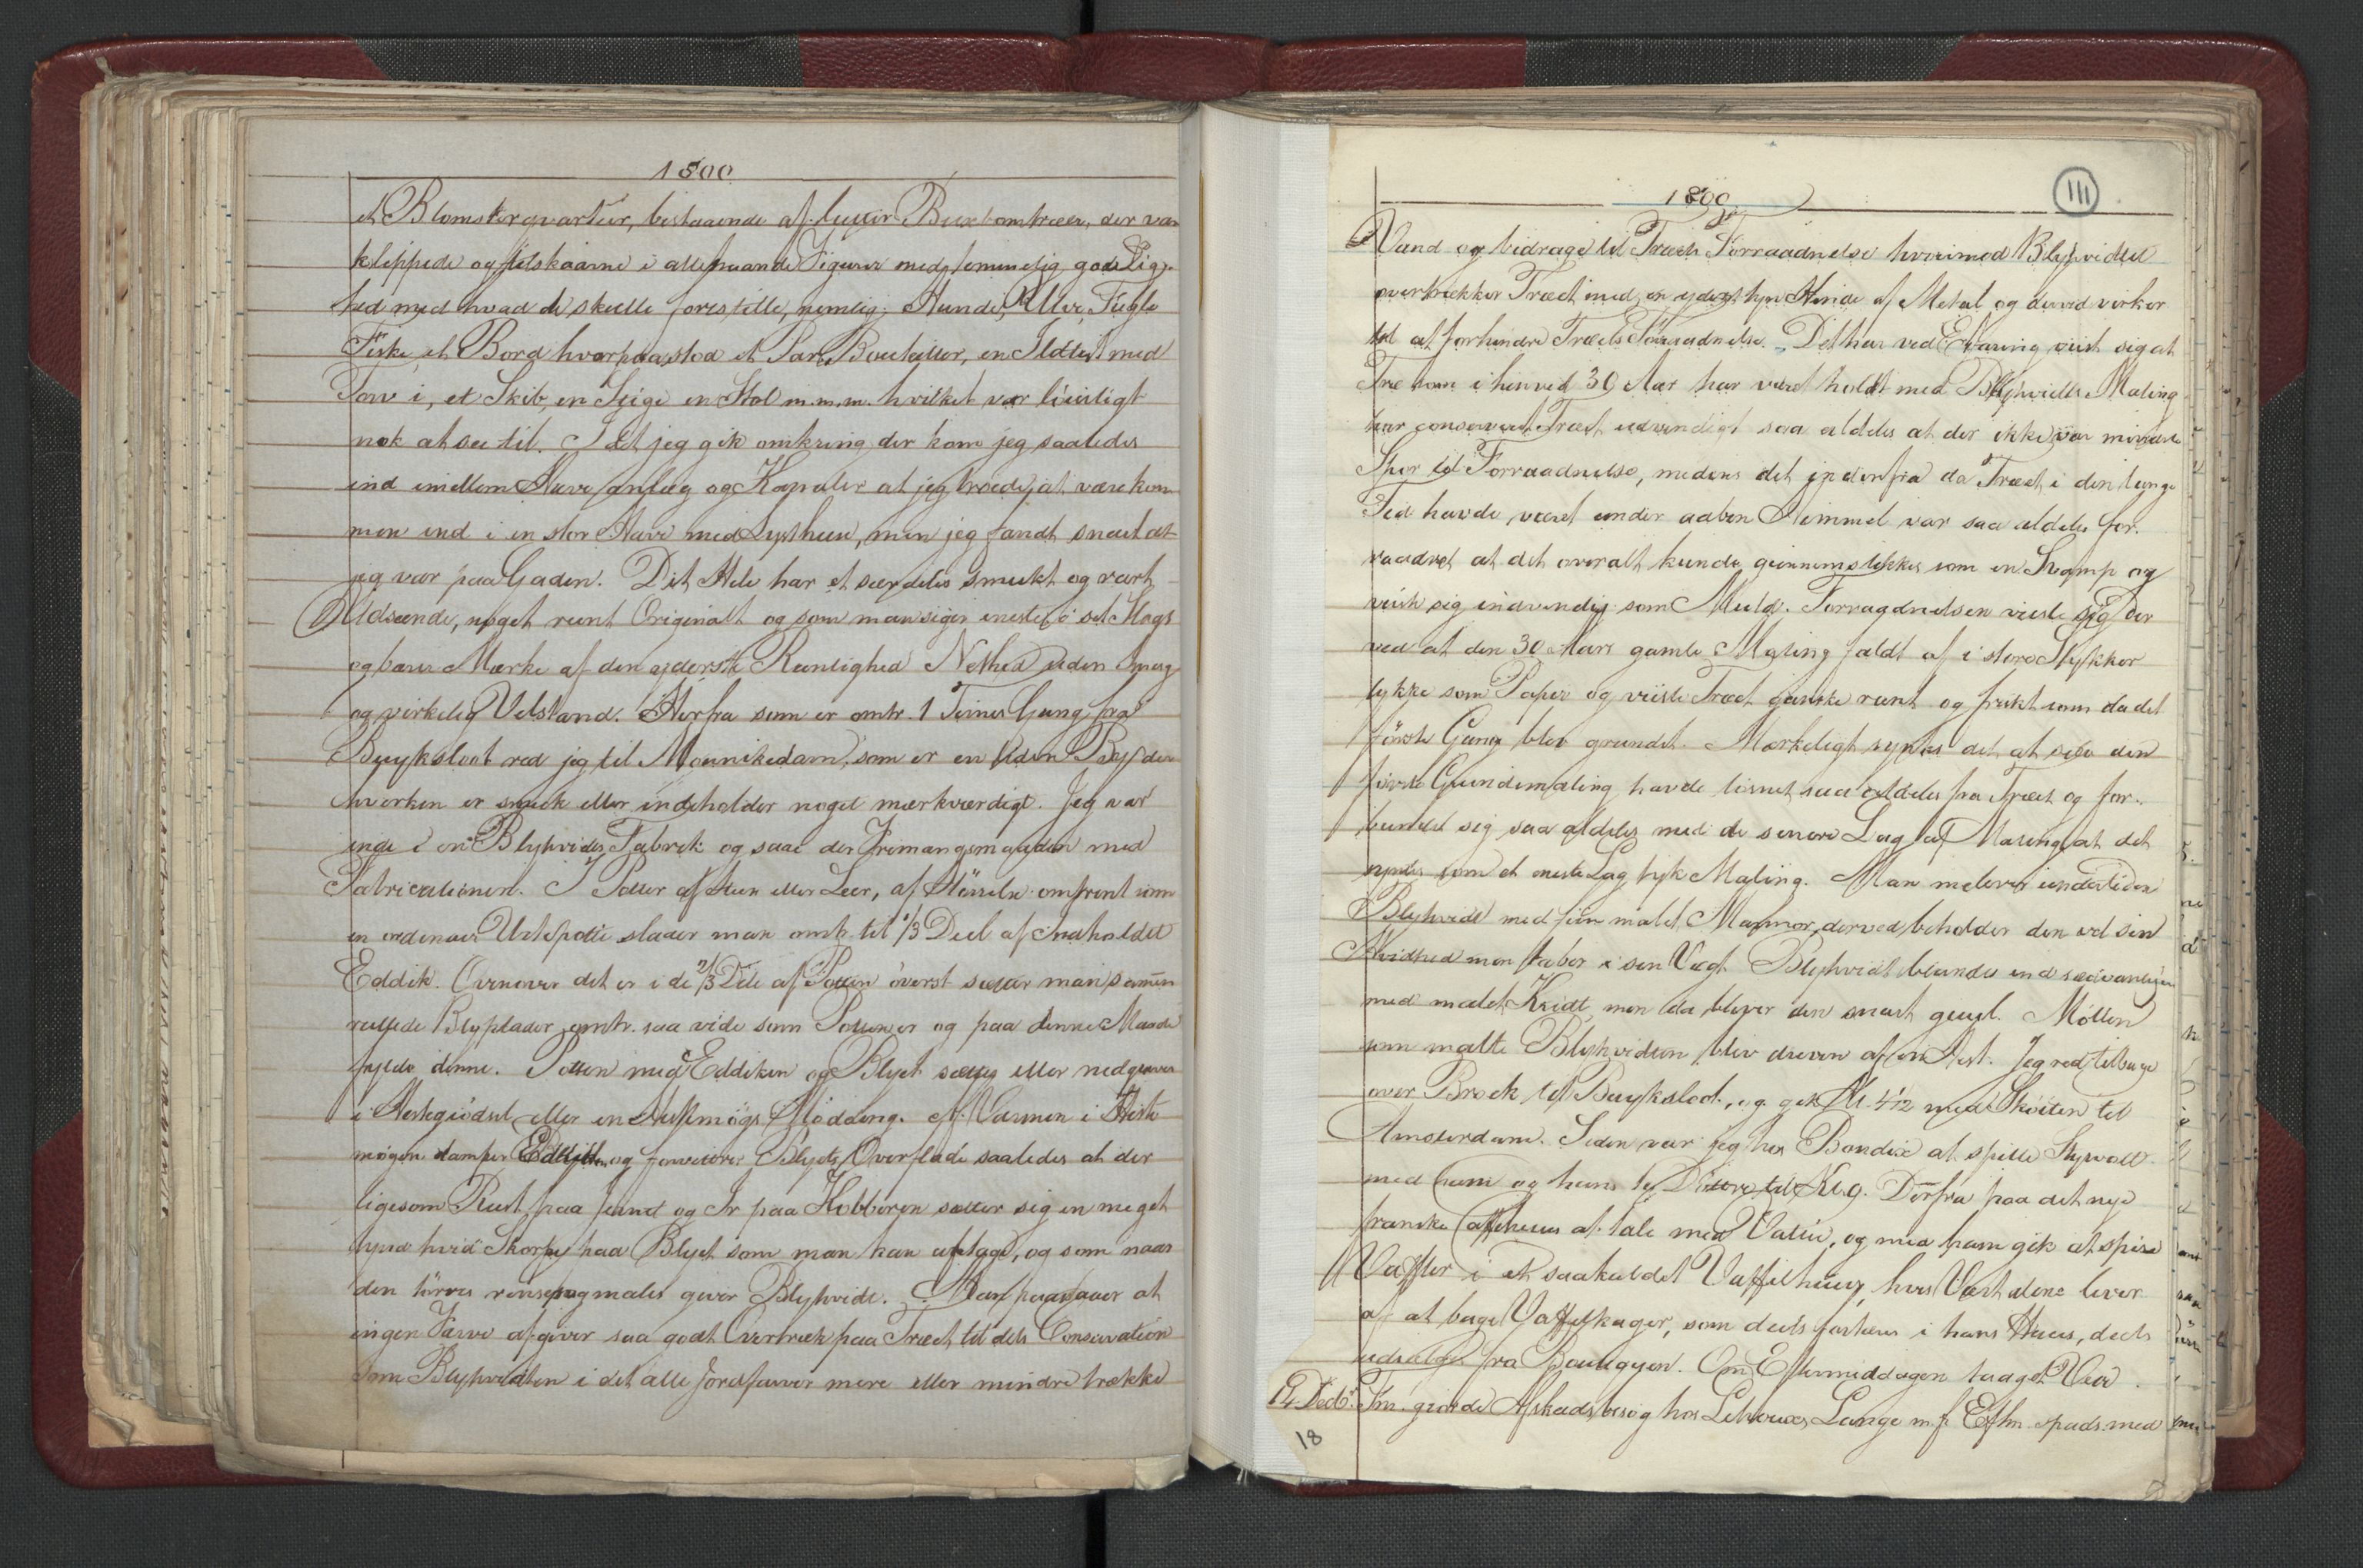 1800
et Blomsterqvarteer, bestaaende af luuter Buxbomtræer, der var
klippede og tilskaarne i allehaande Figurer med temmelig god Lig-
hed med hvad de skulle forestille, nemlig: Hunde, Ulve, Fugle
Fiske, et Bord hvorpaa stod et Par Bouteiller, en Ildtest med
Törv i, et Skib, en Stige en Stol m.m.m. hvilket var luurligt
nok at see til. I det jeg gik omkring der kom jeg saaledes
ind imellem Have anlæg og Kanaler at jeg troede at være kom
men ind i en stor Have med Lysthuse, men jeg fandt snart at
jeg var paa Gaden. Det Hele har et særdeles smukt og rart
Udseende, noget reent Originalt og som man siger eneste i sit Slags
og bærer Mærke af den yderste Reenlighed Nethed uden Smag
og virkelig Velstand. Herfra som er omtr. 1 Times Gang fra
Buyksloot red jeg til Monnikedam, som er en liden By der
hverken er smuk eller indeholder noget mærkværdigt. Jeg var
inde i en Blyhvides Fabrik og saae der Fremangsmaaden med
Fabricationen. I Potter af Steen eller Leer, af Störrelse omtrent som
en ordinair Urtepotte slaaer man omtr. til 1/3 Deel af Indholdet
Eddik. Ovenover det er i de 2/3 Dele af Potten överst sætter man sammen
rullede Blyplader omtr. saa vide som Potten er og paa denne Maade
fyldes denne. Potten med Eddiken og Blyet sættes eller nedgraves
i Hestegiödsel eller en Hestmögs Mödding. Af Varmen i Heste
mögen damper Eddiken og forvittrer Blyets Overflade saaledes at der
ligesom Rust paa Jernd og Ir paa Kobberen sætter sig en meget
tynd hvid Skorpe paa Blyet som man kan aftage, og som naar
den törres renses og males giver Blyhvidt. Man paastaaer at
ingen Farve afgiver saa godt Overtræk paa Træet til dets Conservation
som Blyhvidten i det alle Jordfarver mere eller mindre trække
1800
111
Vand og bidrage til Træets Forraadnelse hvorimod Blyhvidtet
overtrækker Træet med en yderst tyn Hinde af Metal og derved virker
til at forhindre Træets Forraadnelse. Det har ved Erfaring viist sig at
Træ som i henved 30 Aar har været holdt med Blyhvidts Maling
har conserveret Træet udvendigt saa aldeles at der ikke var mindste
Spor til Forraadnelse, medens det indenfra da Træet i den lange
Tid havde været under aaben Himmel var saa aldeles for-
raadnet at det overalt kunde giennemstikkes som en Svamp og
viiste sig indvendig som Muld. Forraadnelsen viiste sig der
ved at den 30 Aars gamle Maling faldt af i store Stykker
tykke som Papir og viiste Træet ganske reent og friskt som da det
förste Gang blev grundet. Mærkeligt syntes det at see den
förste Grundemaling havde lösnet saa aldeles fra Træet og for-
bundet sig saa aldeles med de senere Lag af Maling at det
syntes som et eneste Lag tyk Maling. Man melerer undertiden
Blyhvidt med fiin malet Marmor, derved beholder den vel sin
Hvidhed men taber i sin Vægt. Blyhvidt blandes end sædvanligere
med malet Kridt, men da bliver den snart guul. Möllen
som malte Blyhvidten blev dreven af en Hest. Jeg red tilbage
over Broek til Buyksloot, og gik Kl. 4 1/2 med Skoiten til
Amsterdam. Siden var jeg hos Bendix at spille Skyvott
med ham og hans to Döttre til Kl. 9. Derfra paa det nye
franske Caffehuus at tale med Vallie, og med ham gik at spise
Vafler i et saakaldet Vaffelhuus, hvis Vært alene lever
af at bage Vaffelkager, som deels fortæres i hans Huus, deels
udsælges fra Boutiqven. Om Eftermiddagen taaget Veir.
14 Decbr. Fm. giorde Afskedsbesög hos Lange m.f. Eftm. spads. med
18